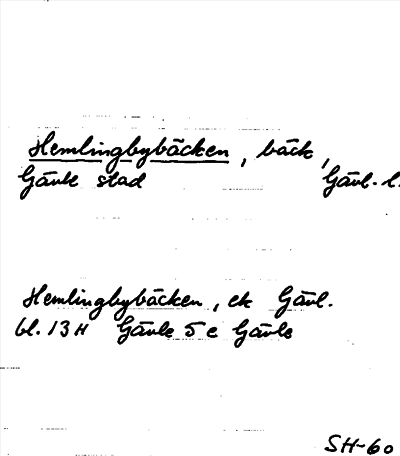 Hemlingbybäcken, bäck,
Gävle stad Gävl. l.
Hemlingbybäcken, ek Gävl.
bl. 13 H Gävle 5 e Gävle
SH-60